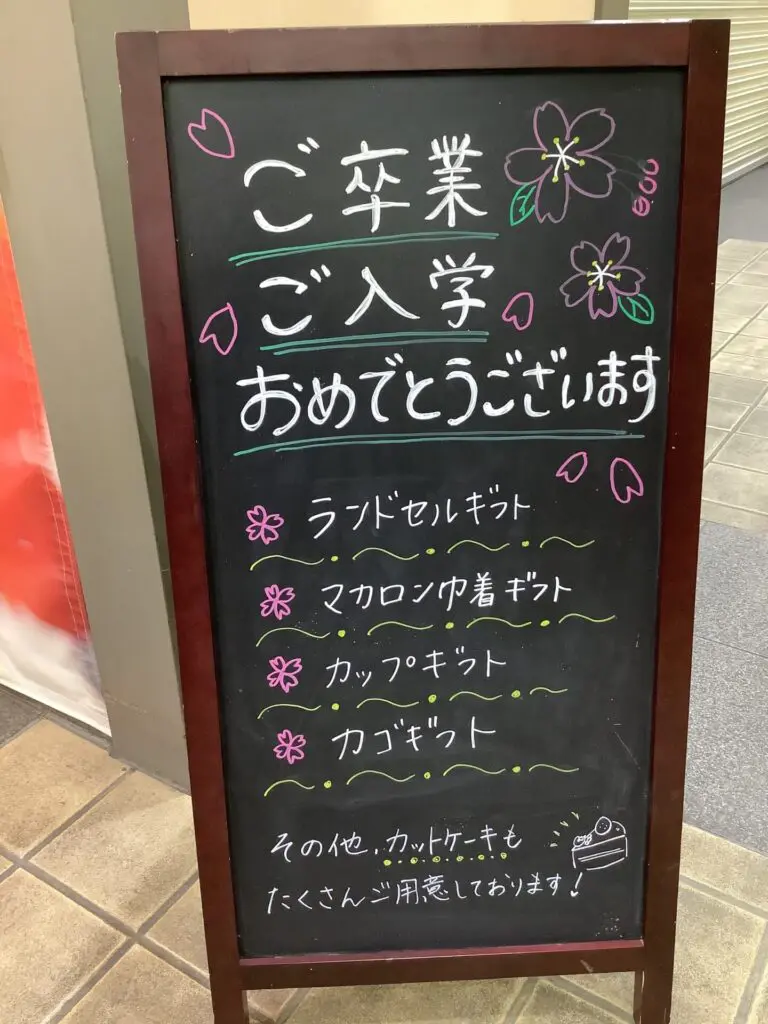 ご卒業
ご入学
おめでとうございます
ランドセルギフト
マカロン巾着ギフト
カップギフト
カゴギフト
その他、カットケーキも
たくさんご用意しております!